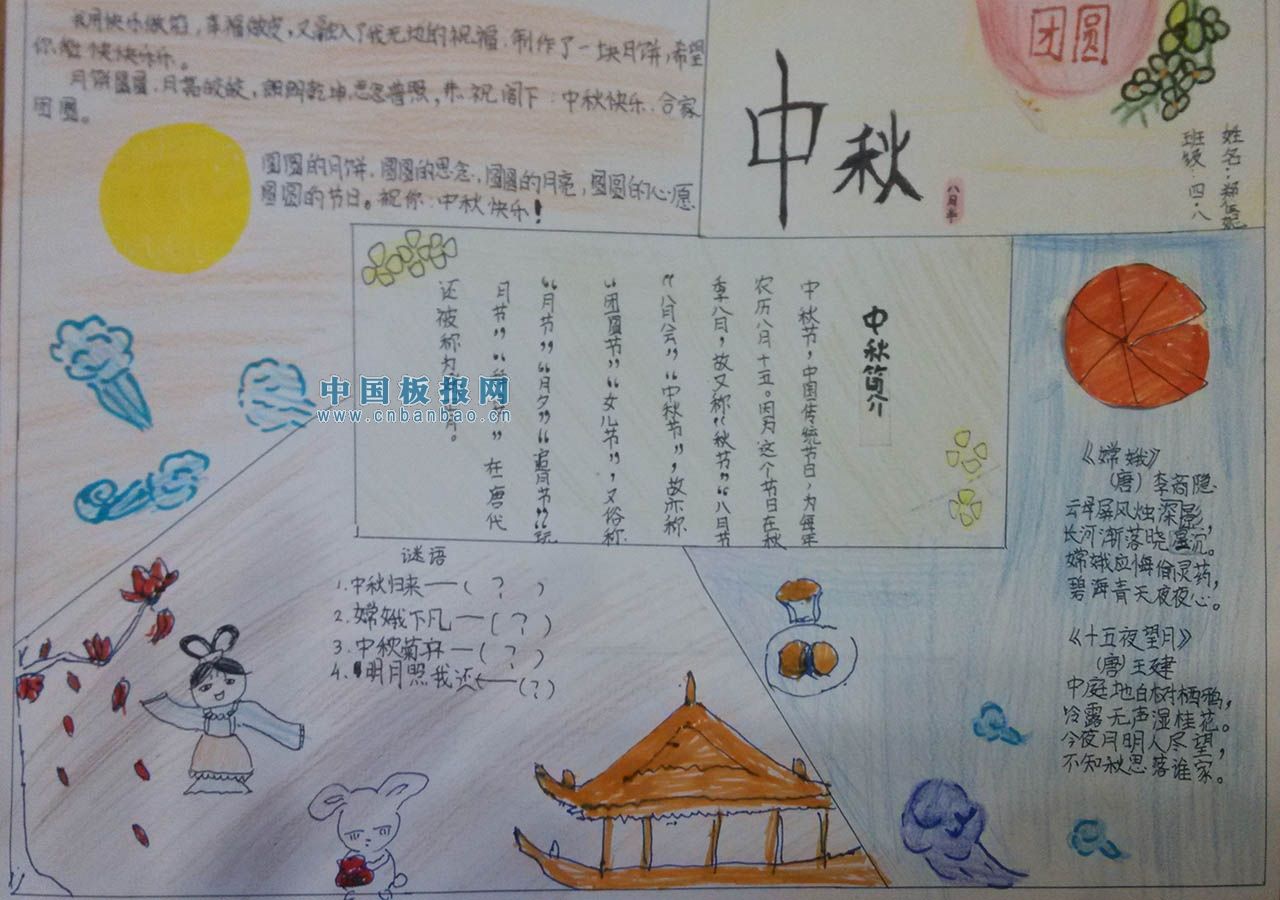 我用快乐做馅,幸福做皮,又融入了我无边的祝福,制作了一块月饼,希望
你能快快乐乐。
月饼圆圆,月亮皎皎,朗朗乾坤,思念普照,恭祝阁下:中秋快乐,合家
团圆。
圆圆的月饼,圆圆的思念,圆圆的月亮,圆圆的心愿
圆圆的节日。祝你:中秋快乐!
团圆
中秋
八月半
姓名:
班级:四·八
中秋简介
中秋节,中国传统节日,为每年
农历八月十五。因为这个节日在秋
季八月,故又称“秋节”“八月节
“八月会”“中秋节”,故亦称
“团圆节”“女儿节”,又俗称
“月节”“月夕”“追月节”“玩
月节”“节”在唐代
还被称为月。
中国板报网
www.cnbanbao.cn
谜语
1.中秋归来——(?)
2.嫦娥下凡——(?)
3.中秋菊开——(?)
4.明月照我还——(?)
《嫦娥》
(唐)李商隐
云母屏风烛深影,
长河渐落晓星沉。
嫦娥应悔偷灵药,
碧海青天夜夜心。
《十五夜望月》
(唐)王建
中庭地白树栖鸦,
冷露无声湿桂花。
今夜月明人尽望,
不知秋思落谁家。